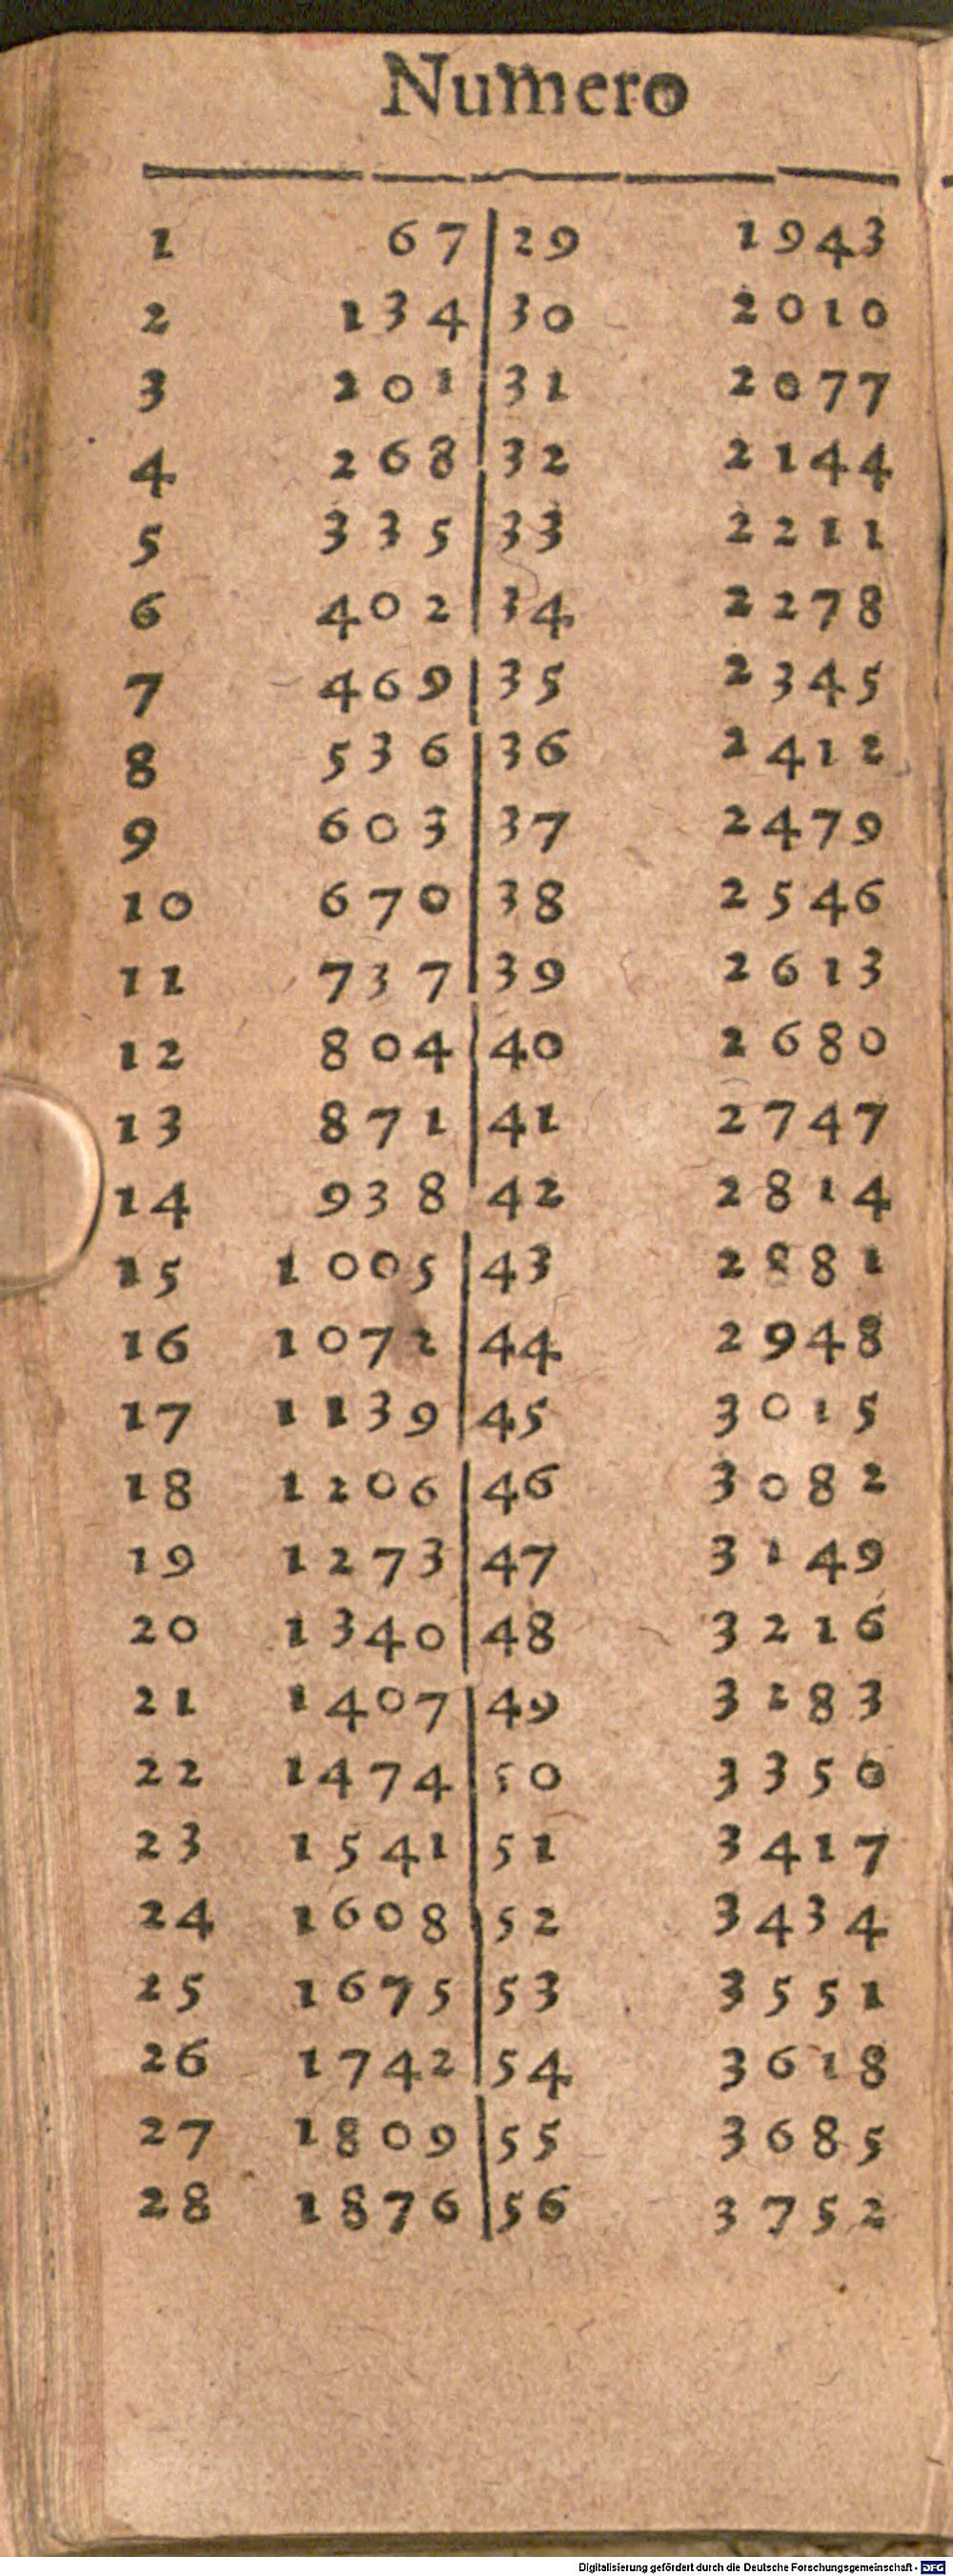 Numero
1 67 29 1943
2 134 30 2010
3 201 31 2077
4 268 32 2144
5 335 33 2211
6 402 34 2278
7 469 35 2345
8 536 36 2412
9 603 37 2479
10 670 38 2546
11 737 39 2613
12 804 40 2680
13 871 41 2747
14 938 42 2814
15 1005 43 2881
16 1072 44 2948
17 1139 45 3015
18 1206 46 3082
19 1273 47 3149
20 1340 48 3216
21 1407 49 3283
22 1474 50 3350
23 1541 51 3417
24 1608 52 3434
25 1675 53 3551
26 1742 54 3618
27 1809 55 3685
28 1876 56 3752
Digitalisierung gefördert durch die Deutsche Forschungsgemeinschaft - DFG